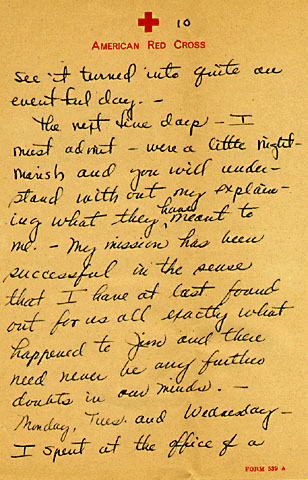 10
AMERICAN RED CROSS
see it turned into quite an
eventful day. –
The next five days – I
must admit – were a little night-
marish and you will under-
stand with out my explain-
ing what they have meant to
me. – My mission has been
successful in the sense
that I have at last found
out for us all exactly what
happened to Jim and there
need never be any further
doubts in our minds. –
Monday, Tues. and Wednesday –
I spent at the office of a
FORM 539 A